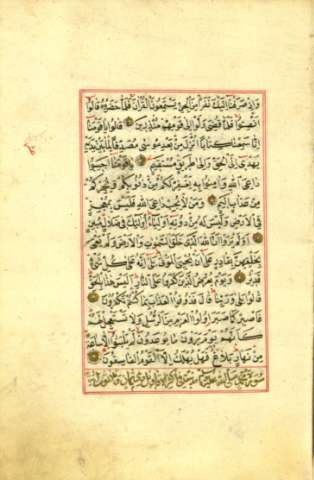 واذ صرفنا اليك نفرا من الجن يستمعون القرآن فلما حضروه قالوا
انصتوا فلما قضي ولوا الى قومهم منذرين قالوا يا قومنا
انا سمعنا كتابا انزل من بعد موسى مصدقا لما بين يديه
يهدي الى الحق والى طريق مستقيم يا قومنا اجيبوا
داعي الله وامنوا به يغفر لكم من ذنوبكم ويجركم
من عذاب اليم ومن لا يجب داعي الله فليس بمعجز
في الارض وليس له من دونه اولياء اولئك في ضلال مبين
اولم يروا ان الله الذي خلق السموات والارض ولم يعي
بخلقهن بقادر على ان يحيي الموتى بلى انه على كل شيء
قدير ويوم يعرض الذين كفروا على النار اليس هذا بالحق
قالوا بلى وربنا قال فذوقوا العذاب بما كنتم تكفرون
فاصبر كما صبر اولوا العزم من الرسل ولا تستعجل لهم
كانهم يوم يرون ما يوعدون لم يلبثوا الا ساعة
من نهار بلاغ فهل يهلك الا القوم الفاسقون
سورة محمد صلى الله عليه